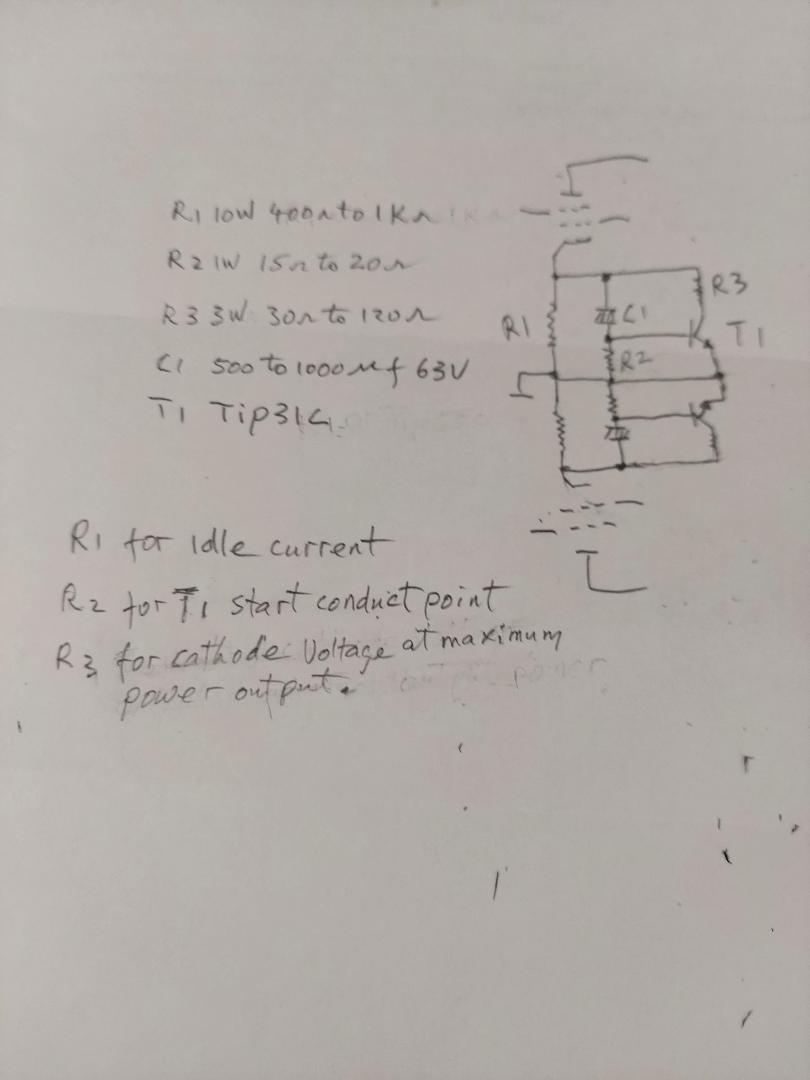 R1 10W 400Ω to 1KΩ
R2 1W 15Ω to 20Ω
R3 3W 30Ω to 120Ω
C1 500 to 1000 Mf 63V
T1 Tip31C
R3
C1
R1
T1
R2
R1 for Idle current
R2 for T1 start conduct point
R3 for cathode Voltage at maximum
power output.